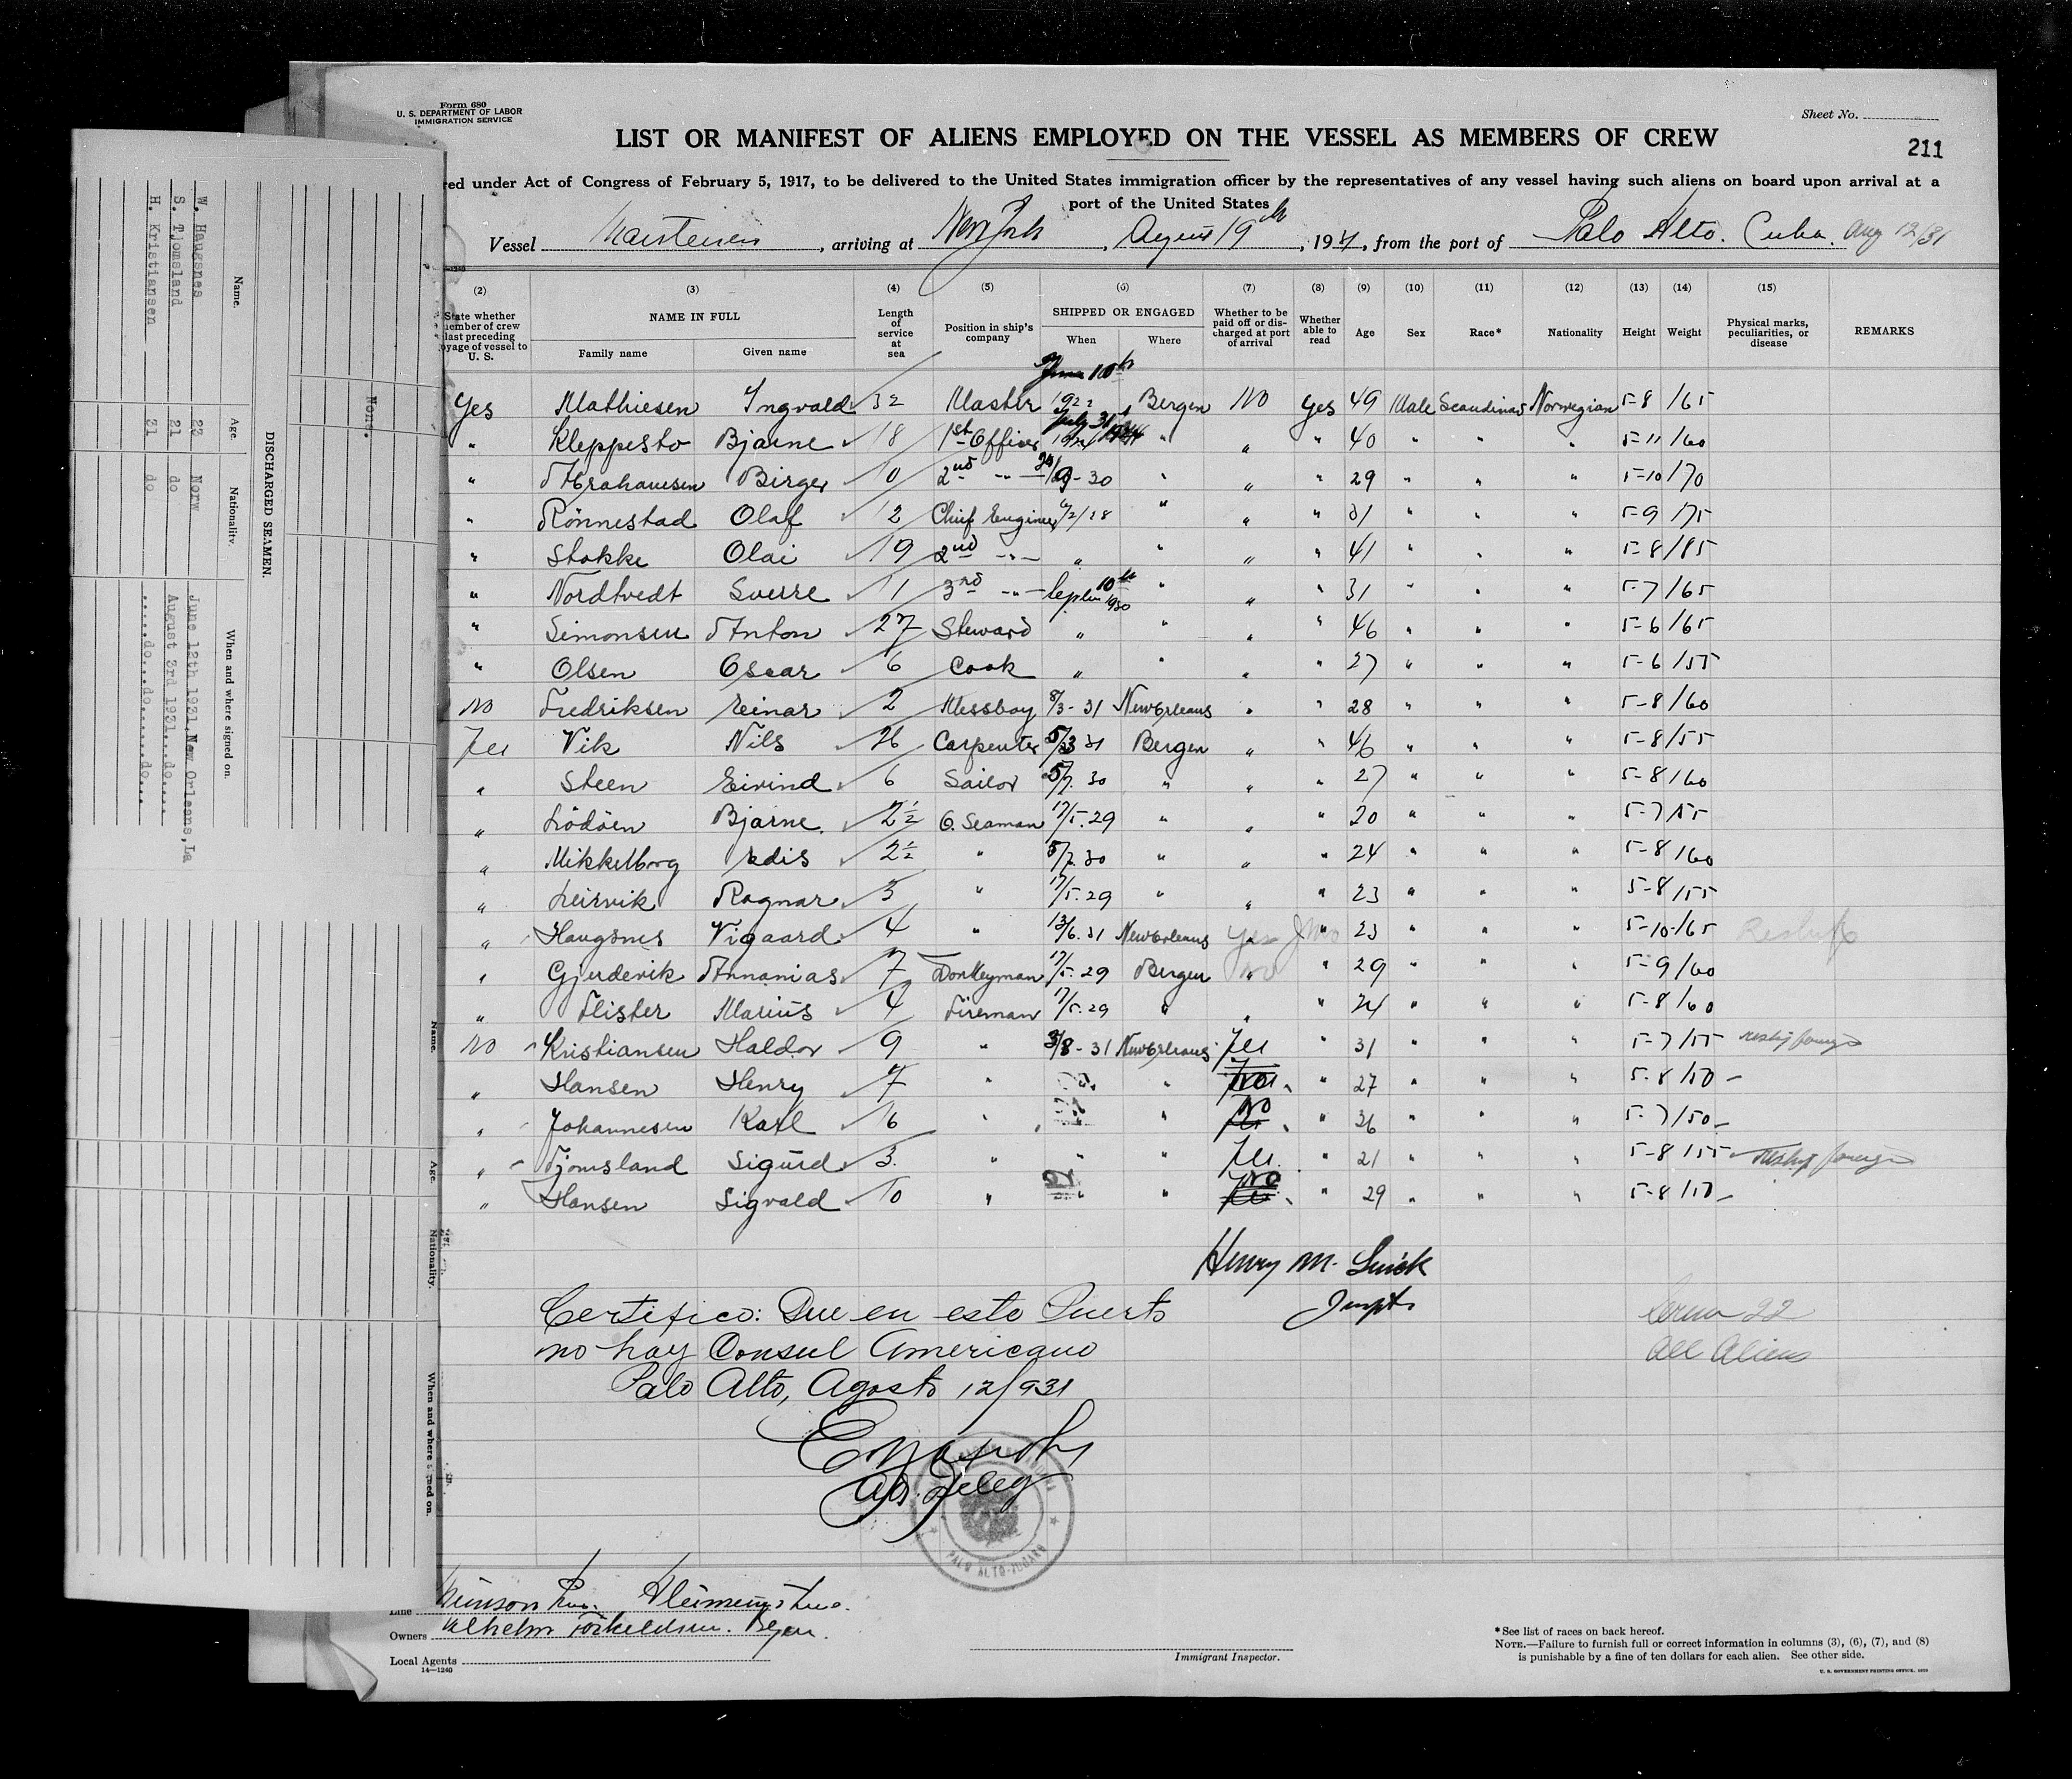 Form 680
U. S. DEPARTMENT OF LABOR
IMMIGRATION SERVICE
Sheet No.
LIST OR MANIFEST OF ALIENS EMPLOYED ON THE VESSEL AS MEMBERS OF CREW
211
red under Act of Congress of February 5, 1917, to be delivered to the United States immigration officer by the representatives of any vessel having such aliens on board upon arrival at a
port of the United States
Vessel , arriving at New York , August 19th , 1931, from the port of Palo Alto. Cuba. Aug 12/31
(2) (3) (4) (5) (6) (7) (8) (9) (10) (11) (12) (13) (14) (15)
State whether member of crew last preceding voyage of vessel to U. S. NAME IN FULL Family name Given name Length of service at sea Position in ship's company SHIPPED OR ENGAGED When Where Whether to be paid off or discharged at port of arrival Whether able to read Age Sex Race* Nationality Height Weight Physical marks, peculiarities, or disease REMARKS
Yes Mathiesen Ingvald 32 Master June 10th 1922 Bergen NO Yes 49 Male Scandinav Norwegian 5-8 165
" Kleppesto Bjarne 18 1st Officer July 31 " " " 40 " " " 5-11 160
" Abrahamsen Birger 10 2nd -"- 30 " " " 29 " " " 5-10 170
" Rönnestad Olaf 12 Chief Engineer " " " 31 " " " 5-9 175
" Stokke Olai 19 2nd -"- " " " " 41 " " " 5-8 185
" Nordtvedt Sverre 11 3rd -"- Septem 10th 1930 " " " 31 " " " 5-7 165
" Simonsen Anton 27 Steward " " " " 46 " " " 5-6 165
" Olsen Oscar 6 Cook " " " " 27 " " " 5-6 155
NO Fredriksen Einar 2 Messboy 8/3-31 New Orleans " " 28 " " " 5-8 160
Yes Vik Nils 26 Carpenter 5/3 31 Bergen " " 46 " " " 5-8 155
" Steen Eivind 6 Sailor 5/7. 30 " " " 27 " " " 5-8 160
" Lödöen Bjarne. 2½ O. Seaman 17/5. 29 " " " 20 " " " 5-7 155
" Mikkelborg Edis 2½ " 5/7. 30 " " " 24 " " " 5-8 160
" Leirvik Ragnar 3 " 17/5. 29 " " " 23 " " " 5-8 155
" Haugsnes Vigaard 4 " 13/6. 31 New Orleans Yes " 23 " " " 5-10 165
" Gjerdevik Annanias 7 Donkeyman 17/5. 29 Bergen No " 29 " " " 5-9 160
" Flister Marius 4 Fireman 17/5. 29 " " " 24 " " " 5-8 160
NO Kristiansen Haldor 9 " 3/8-31 New Orleans Yes " 31 " " " 5-7 155 reship foreign
" Hansen Henry 7 " " No " 27 " " " 5-8 150 -
" Johannesen Karl 16 " " No " 36 " " " 5-7 150 -
" Tjomsland Sigurd 3. " " " Yes. " 21 " " " 5-8 155 reship foreign
" Hansen Sigvald 10 " " " No " 29 " " " 5-8 150 -
Henry M.
Inspt.
Certifico: Que en esto Puerto
no hay Consul Americano
Palo Alto, Agosto 12/931
Crew 22
All Aliens
PALO ALTO-JUCARO
Line Munson Line.
Owners Wilhelm Torkildsen. Bergen.
Local Agents
14—1240
Immigrant Inspector.
*See list of races on back hereof.
NOTE.—Failure to furnish full or correct information in columns (3), (6), (7), and (8)
is punishable by a fine of ten dollars for each alien. See other side.
U. S. GOVERNMENT PRINTING OFFICE
DISCHARGED SEAMEN.
Name. Age. Nationality. When and where signed on.
W. Haugsnes 23 Norw June 12th 1931, New Orleans, La
S. Tjomsland 21 do August 3rd 1931...do....
H. Kristiansen 31 do .....do...do........do...
None.
Name. Age. Nationality. When and where signed on.